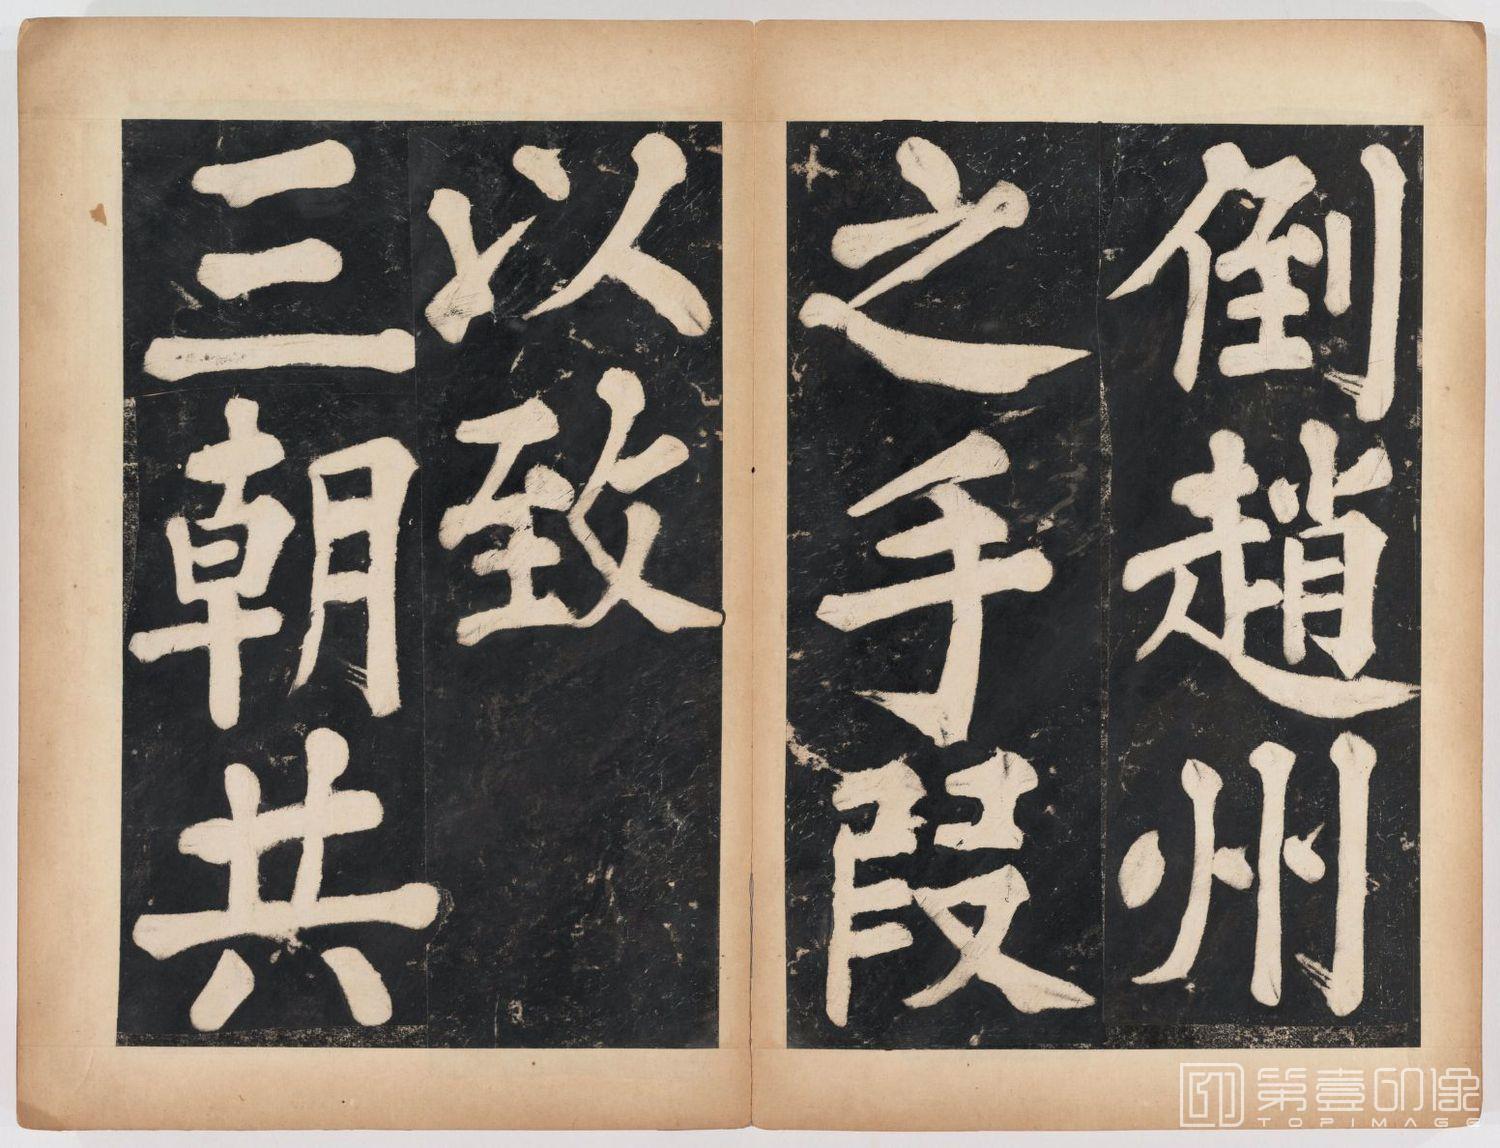 倒趙州
之手段
以致
三朝共
第壹印像
TOPIMAGE